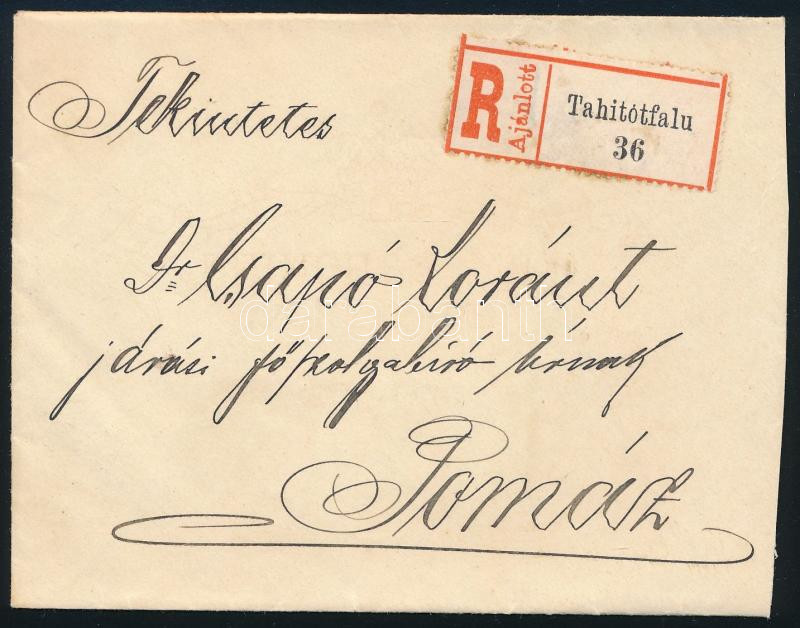 Tekintetes
R Ajánlott
Tahitótfalu
36
Dr Csapó Loránt
darabanth
járási főszolgabíró úrnak
Pomáz